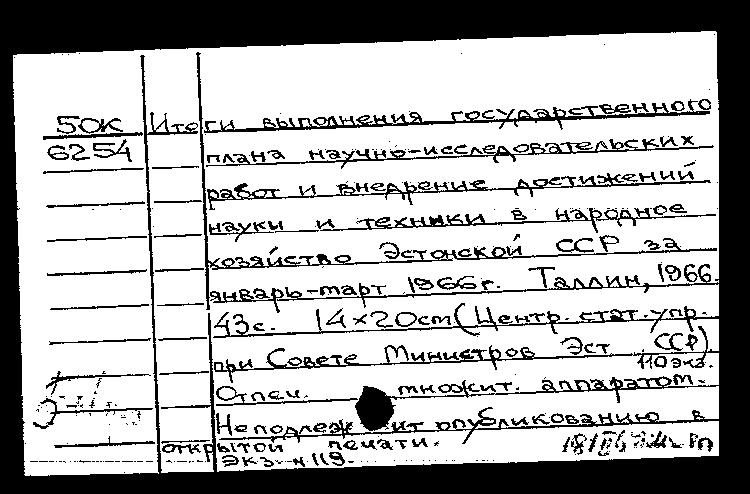 50К Итоги выполнения государственного
6254 плана научно-исследовательских
работ и внедрение достижений
науки и техники в народное
хозяйство Эстонской ССР за
январь-март 1966 г. Таллин, 1966.
43с. 14×20cm (Центр. стат. упр.
при Совете Министров Эст ССР)
110 экз.
Отпеч. множит. аппаратом.
Неподлежит опубликованию в
открытой печати.
Экз. н 119.